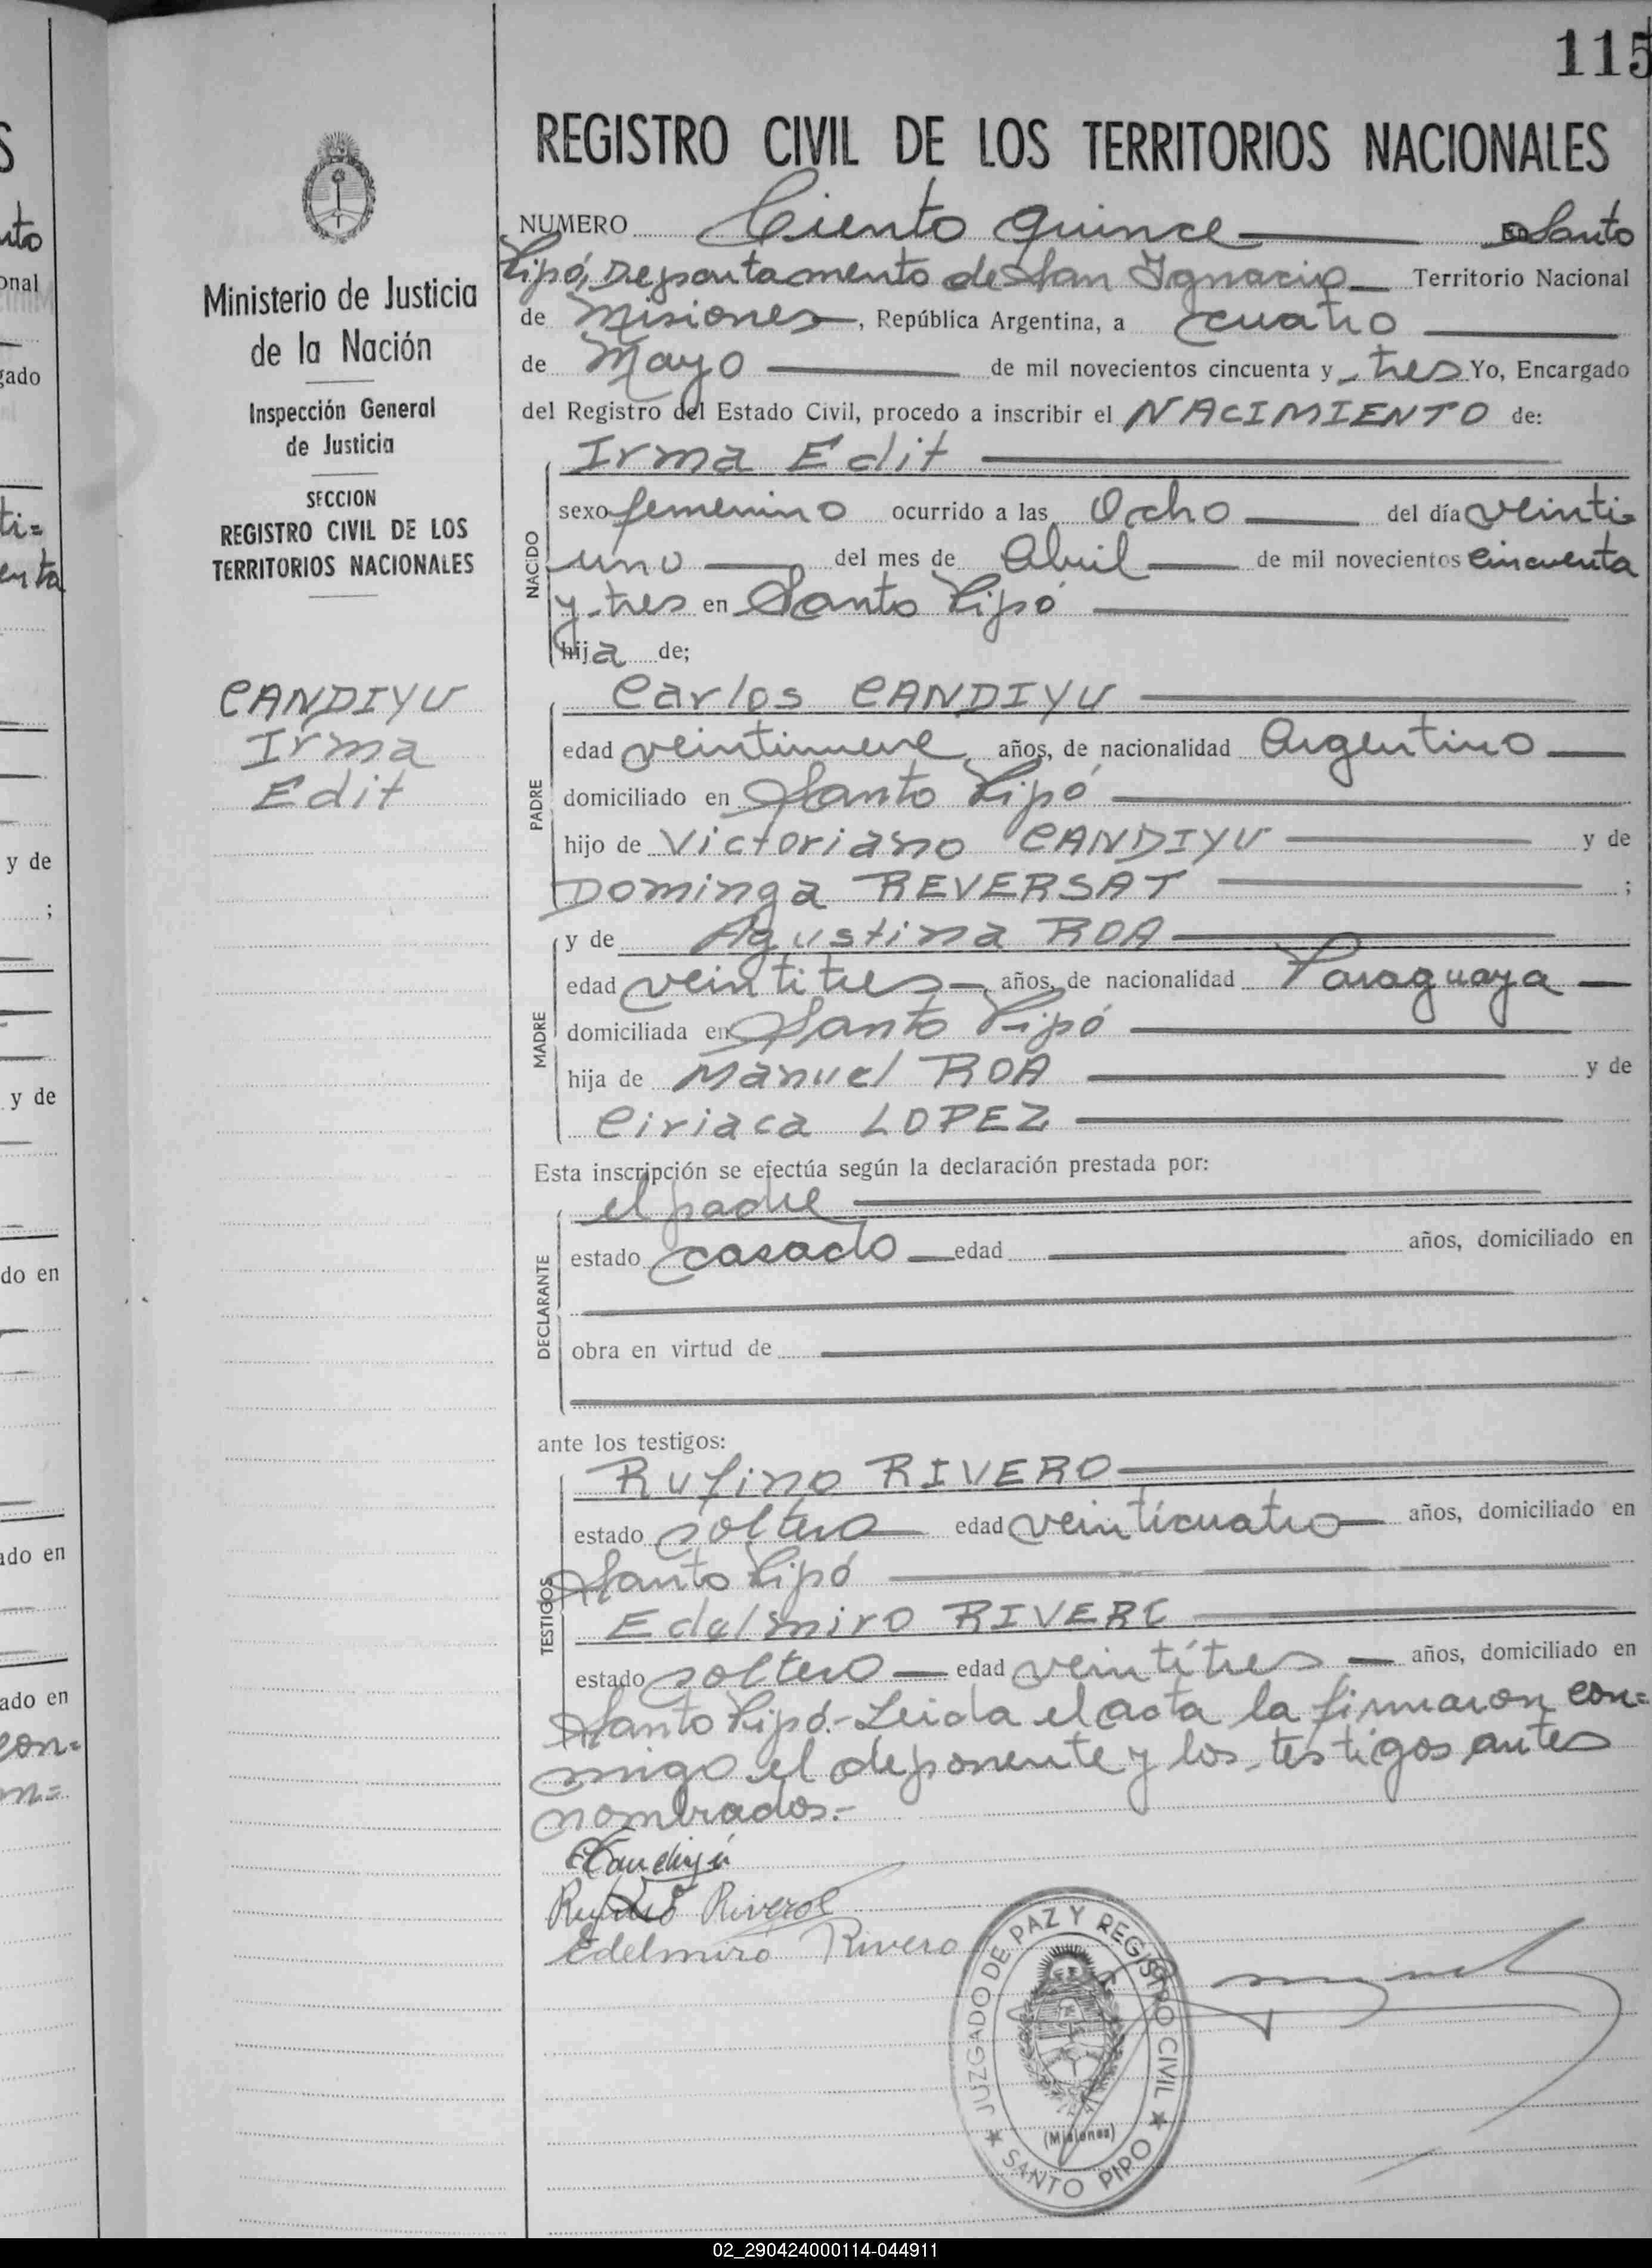 115
REGISTRO CIVIL DE LOS TERRITORIOS NACIONALES
Ministerio de Justicia
de la Nación
Inspección General
de Justicia
SECCION
REGISTRO CIVIL DE LOS
TERRITORIOS NACIONALES
CANDIYU
Irma
Edit
NUMERO Ciento quince En Santo
Pipó, Departamento de San Ignacio Territorio Nacional
de Misiones, República Argentina, a cuatro
de Mayo de mil novecientos cincuenta y tres Yo, Encargado
del Registro del Estado Civil, procedo a inscribir el NACIMIENTO de:
Irma Edit
NACIDO
sexo femenino ocurrido a las Ocho del día veinti=
uno del mes de Abril de mil novecientos cincuenta
y tres en Santo Pipó
hija de;
PADRE
Carlos CANDIYU
edad veintinueve años, de nacionalidad Argentino
domiciliado en Santo Pipó
hijo de Victoriano CANDIYU y de
Dominga REVERSAT ;
MADRE
y de Agustina ROA
edad veintitres años, de nacionalidad Paraguaya
domiciliada en Santo Pipó
hija de Manuel ROA y de
Ciriaca LOPEZ
Esta inscripción se efectúa según la declaración prestada por:
DECLARANTE
el padre
estado casado edad años, domiciliado en
obra en virtud de
ante los testigos:
TESTIGOS
Rufino RIVERO
estado soltero edad veinticuatro años, domiciliado en
Santo Pipó
Edelmiro RIVERO
estado soltero edad veintitres años, domiciliado en
Santo Pipó.- Leida el acta la firmaron con=
migo el deponente y los testigos antes
nombrados.-
CCandiyú
Rufino Rivero
Edelmiro Rivero
JUZGADO DE PAZ Y REGISTRO CIVIL
(Misiones)
★ SANTO PIPO ★
nto
onal
gado
ti=
enta
y de
;
y de
do en
ado en
ado en
con=
m=
02_290424000114-044911